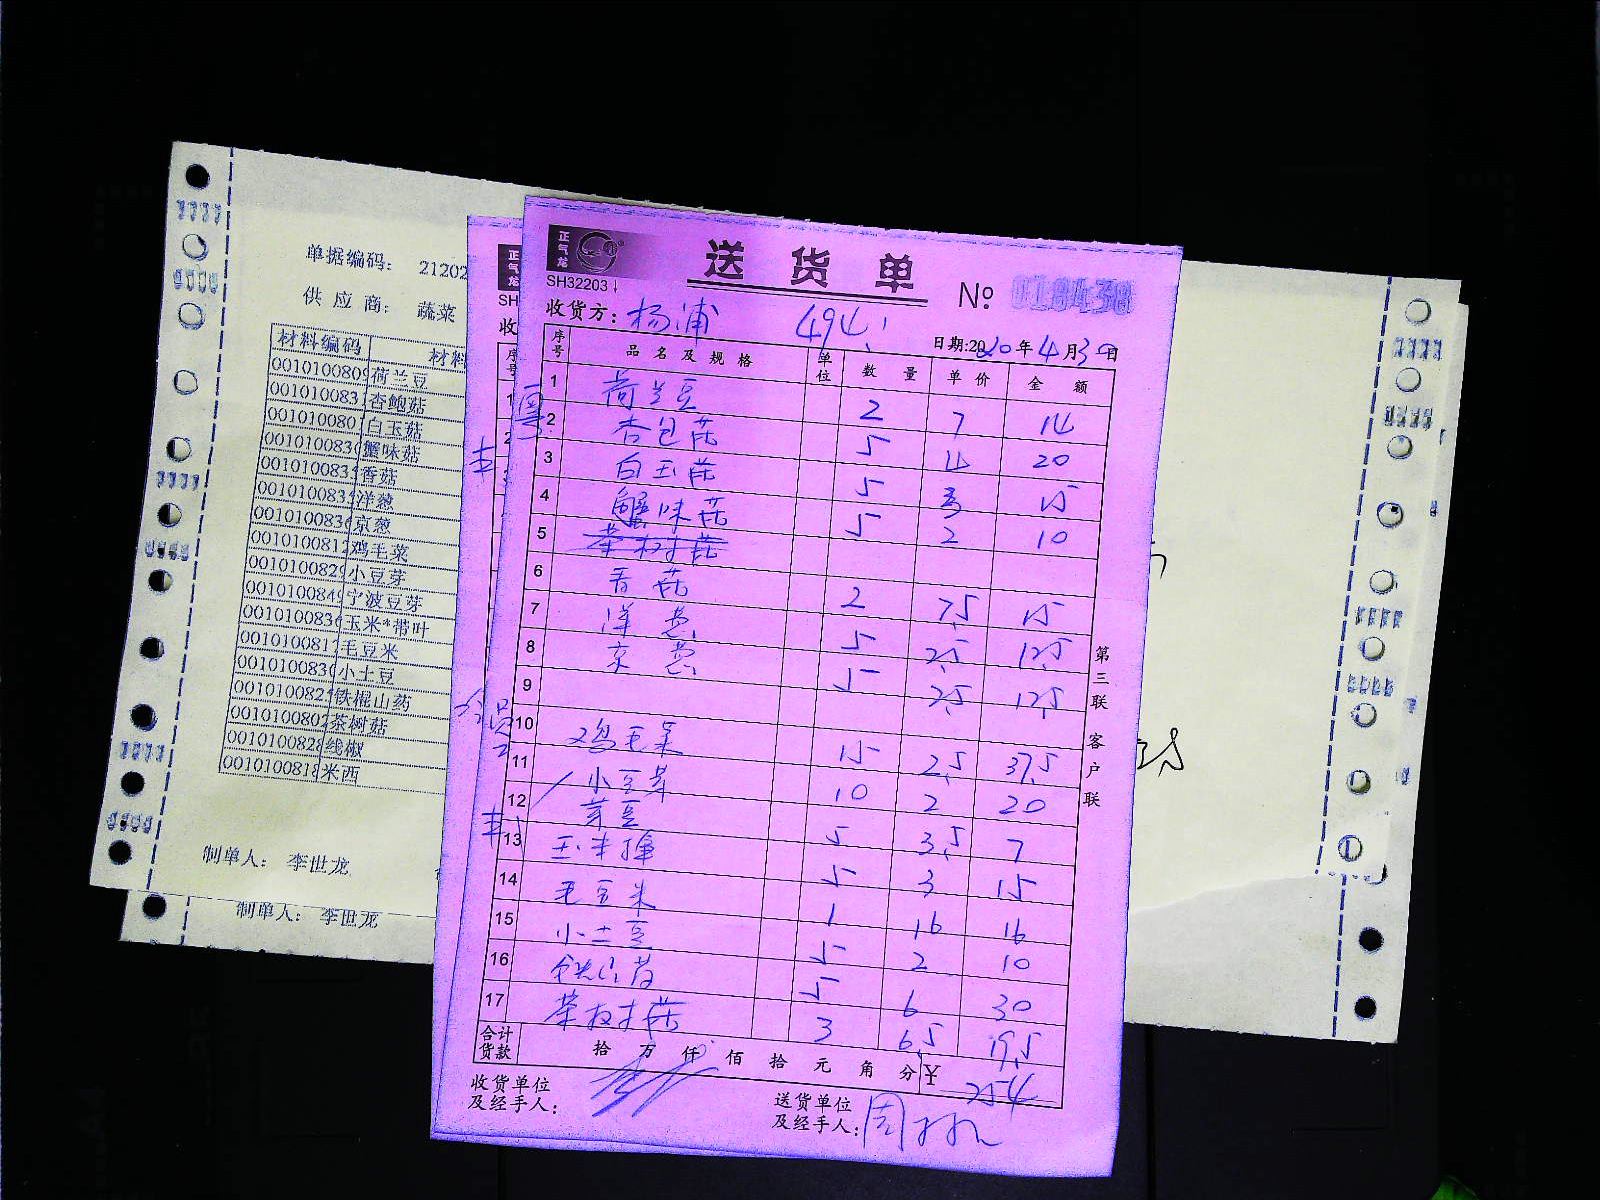 单据编码： 21202
供 应 商： 蔬菜
材料编码 材料
0010100809 荷兰豆
001010083 杏鲍菇
001010080 白玉菇
001010083 蟹味菇
001010083 香菇
001010083 洋葱
001010083 京葱
001010081 鸡毛菜
001010082 小豆芽
001010084 宁波豆芽
001010083 玉米*带叶
001010081 毛豆米
001010083 小土豆
001010082 铁棍山药
001010080 茶树菇
001010082 线椒
001010081 米西
制单人： 李世龙
制单人： 李世龙
正气龙
SH
收
正气龙
送 货 单
SH32203
№ 018438
收货方：杨浦 494
日期:2020年4月30日
序号 品 名 及 规 格 单位 数 量 单 价 金 额
1 荷兰豆 2 7 14
2 杏包菇 5 4 20
3 白玉菇 5 3 15
4 蟹味菇 5 2 10
5 茶树菇
6 香菇 2 7.5 15
7 洋葱 5 2.5 12.5
8 京葱 5 2.5 12.5
9
10 鸡毛菜 15 2.5 37.5
11 小豆芽 10 2 20
12 芽豆 5 3.5 7
13 玉米棒 5 3 15
14 毛豆米 1 16 16
15 小土豆 5 2 10
16 铁山药 5 6 30
17 茶树菇 3 6.5 19.5
合计货款 拾 万 仟 佰 拾 元 角 分 ¥ 254
收货单位
及经手人：
送货单位
及经手人：周
第三联 客户联